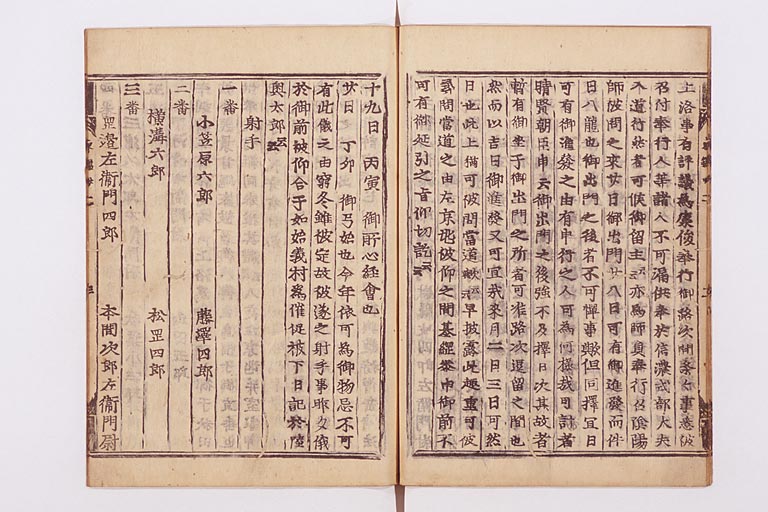 上洛事有評議為康俊奉行御路次間条々事悉被
召付奉行人等諸人不可漏供奉於信濃民部大夫
入道行然者可候御留主云云亦為師員奉行召陰陽
師被問之来廿日御出門廿八日可有御進發而件
日八龍也御出門之後者不可憚事歟但可擇宜日
可有御進發之由有申行之人可為何様哉可計者
晴賢朝臣申云御出門之後強不及擇日次其故者
暫有御坐于御出門之所者可准路次逗留之間也
然而以吉日御進發又可宜哉来月二日三日可然
日也此上猶可被問當道歟云云早披露此趣重可被
尋問當道之由左京兆被仰之間基綱参申御前不
可有御延引之旨仰切訖云云
十九日丙寅御所心經會也
廿日丁卯御弓始也今年依可為御物忌不可
有此儀之由窮冬雖被定故被遂之射手事耶文儀
於御前被仰合于如始義村為催促被下日記於陵
奥太郎云云
射手
一番
小笠原六郎 藤澤四郎
二番
横溝六郎 松罡四郎
三番
渡左衞門四郎 本間次郎左衞門尉